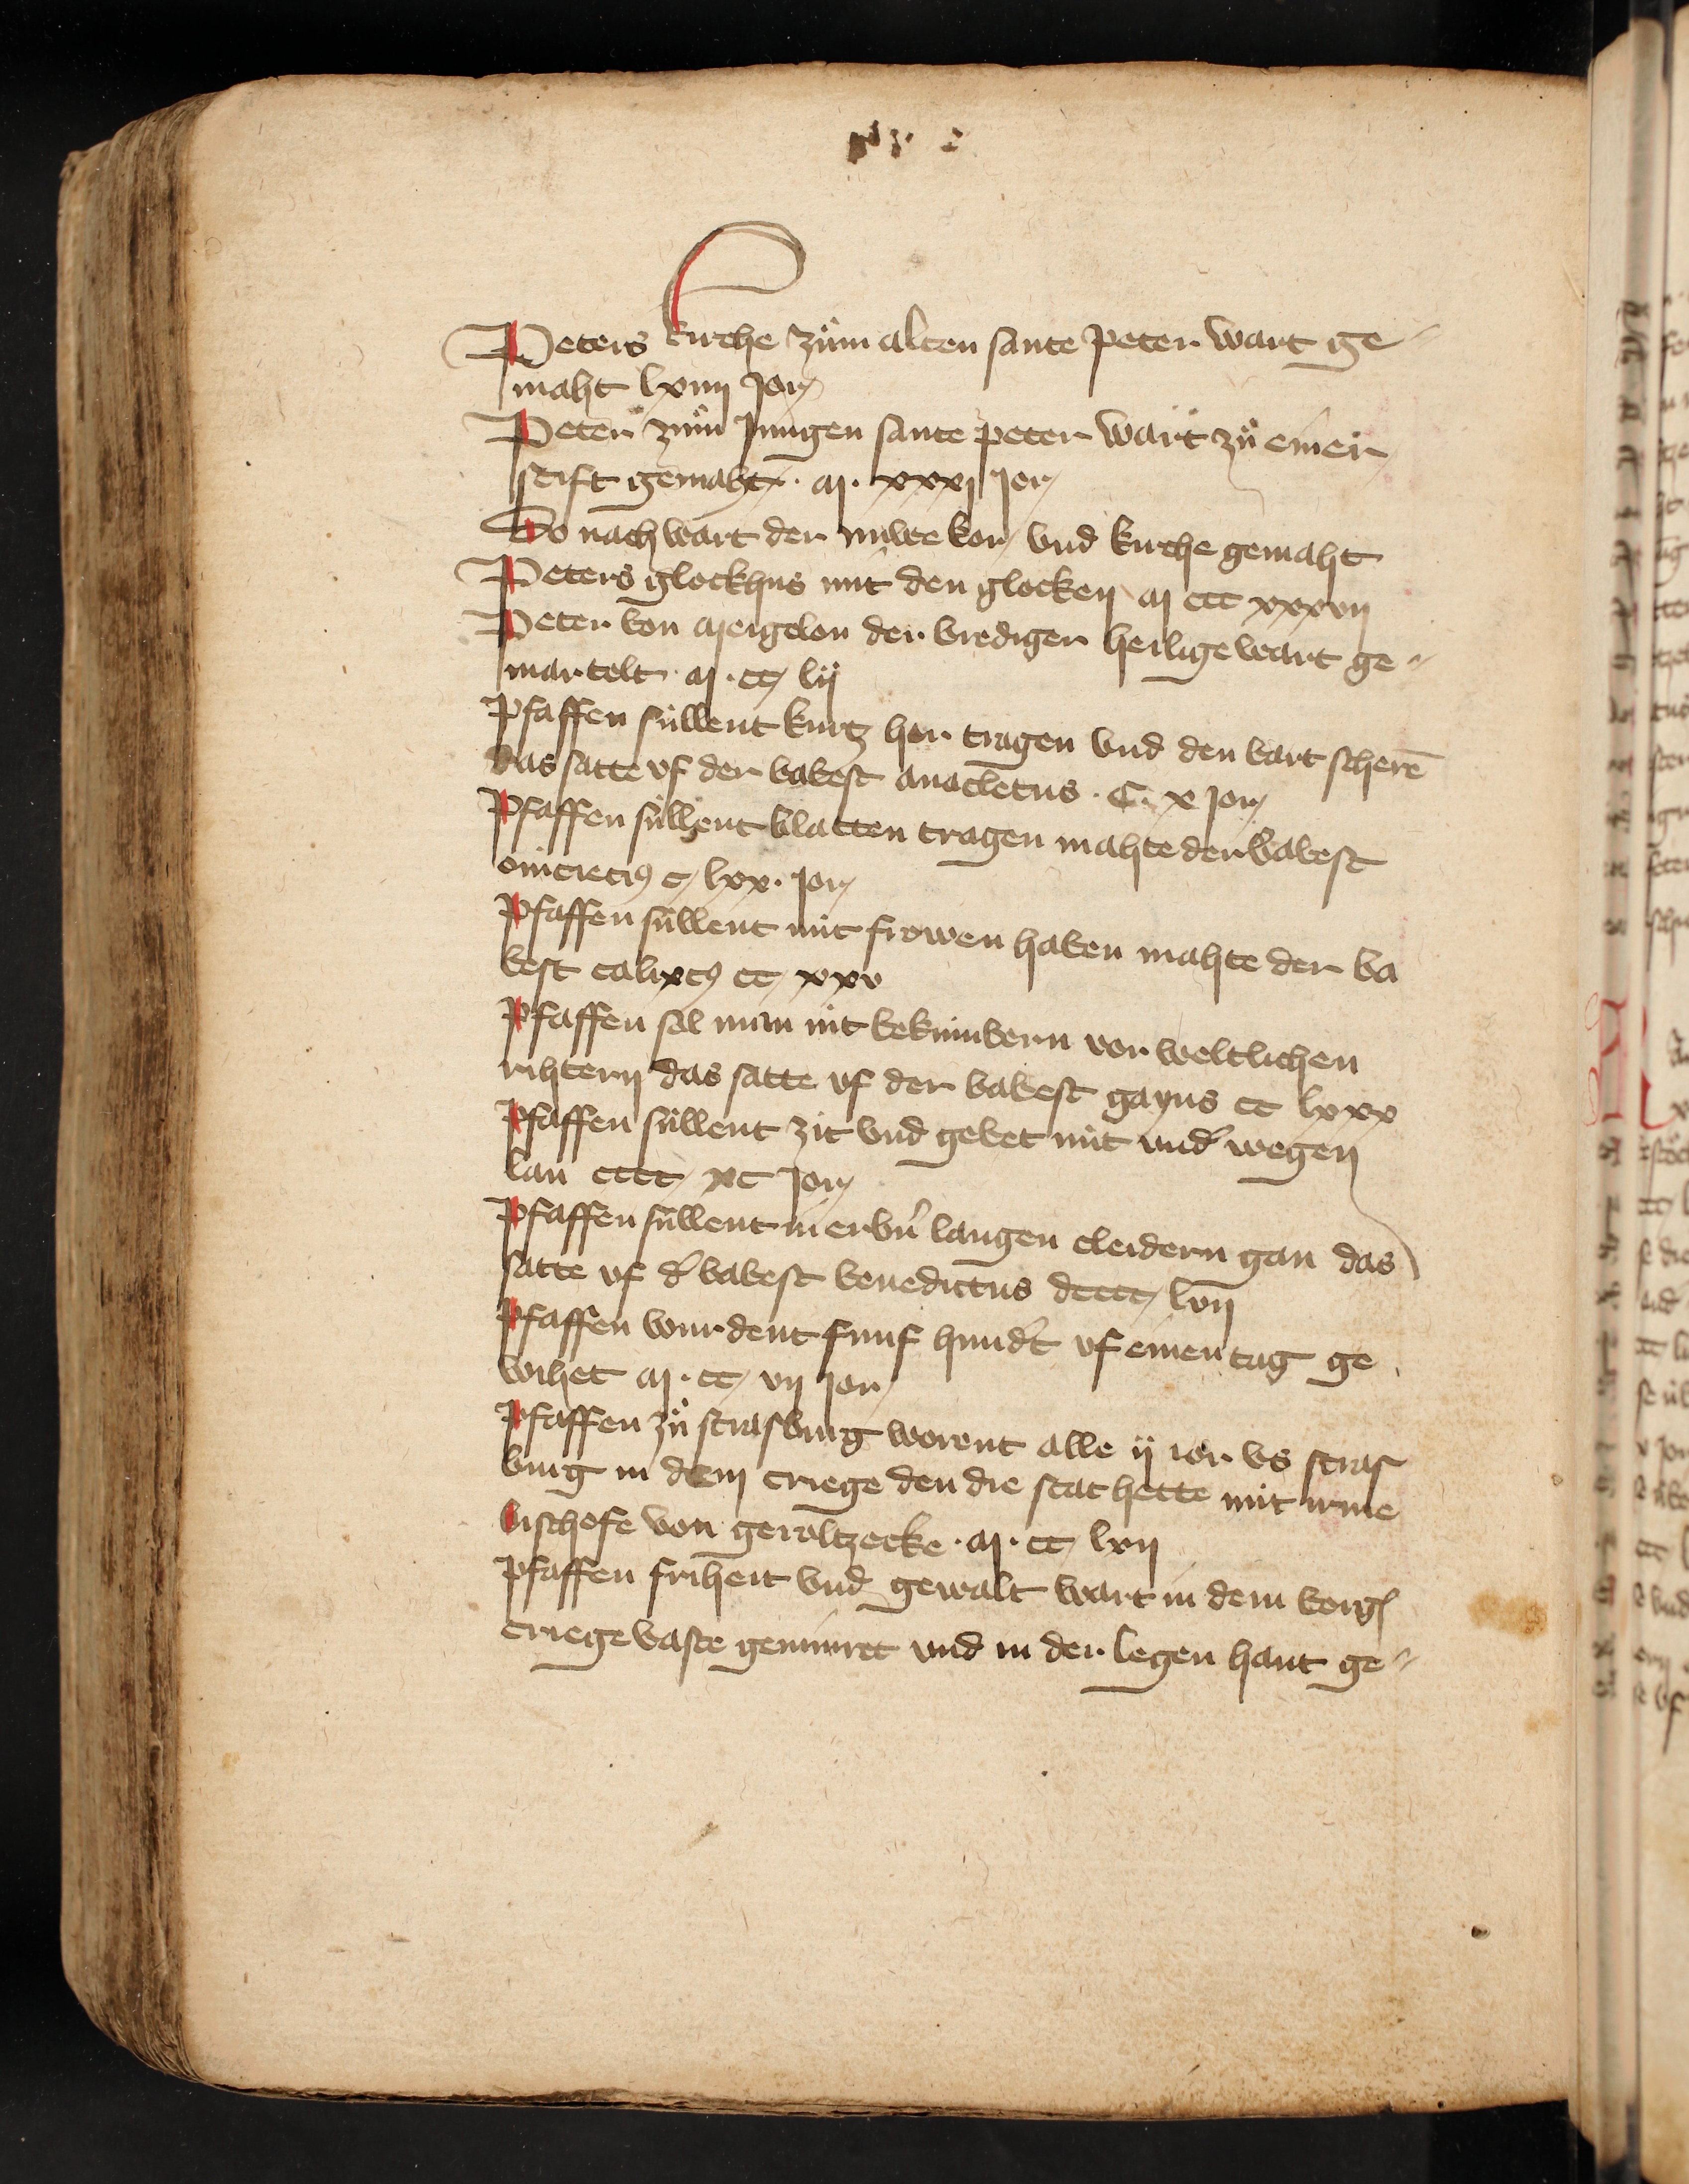 Peters kirche zům alten sante peter wart ge-
maht lxiiij Jor
Peter zům Jungen sante peter wart zů einer
stift gemaht · M · xxxj Jor
Do nach wart der núwe kor vnd kirche gemaht
Peters glockhus mit den glocken M ccc xxxvij
Peter von Meigelon der brediger heilige wart ge-
martelt · M · cc lij
Pfaffen súllent kurtz hor tragen vnd den bart scherē
das satte vf der bobest anacletus · C · x Jor
Pfaffen súllent blatten tragen mahte der bobest
c lxx · Jor
Pfaffen súllent nút frowen haben mahte der bo
best calixtꝯ cc xxv
Pfaffen sol man nit bekúmbern vor weltlichen
rihtern das satte vf der bobest gayus cc lxxx
Pfaffen súllent zit vnd gebet nút vnd' wegen
lan cccc xc Jor
Pfaffen súllent in erbn̄ langen cleidern gan das
satte vf d' bobest benedictus dcccc lvij
Pfaffen wurdent funf hund't vf einen tag ge
wihet M · cc vij Jor
Pfaffen zů strasburg worent alle ij ior vs stras
burg in dem criege den die stat hette mit irme
bischofe von geroltzecke · M · cc lxij
Pfaffen friheit vnd gewalt wart in dem vorg
criege vaste geminret vnd in der legen hant ge-